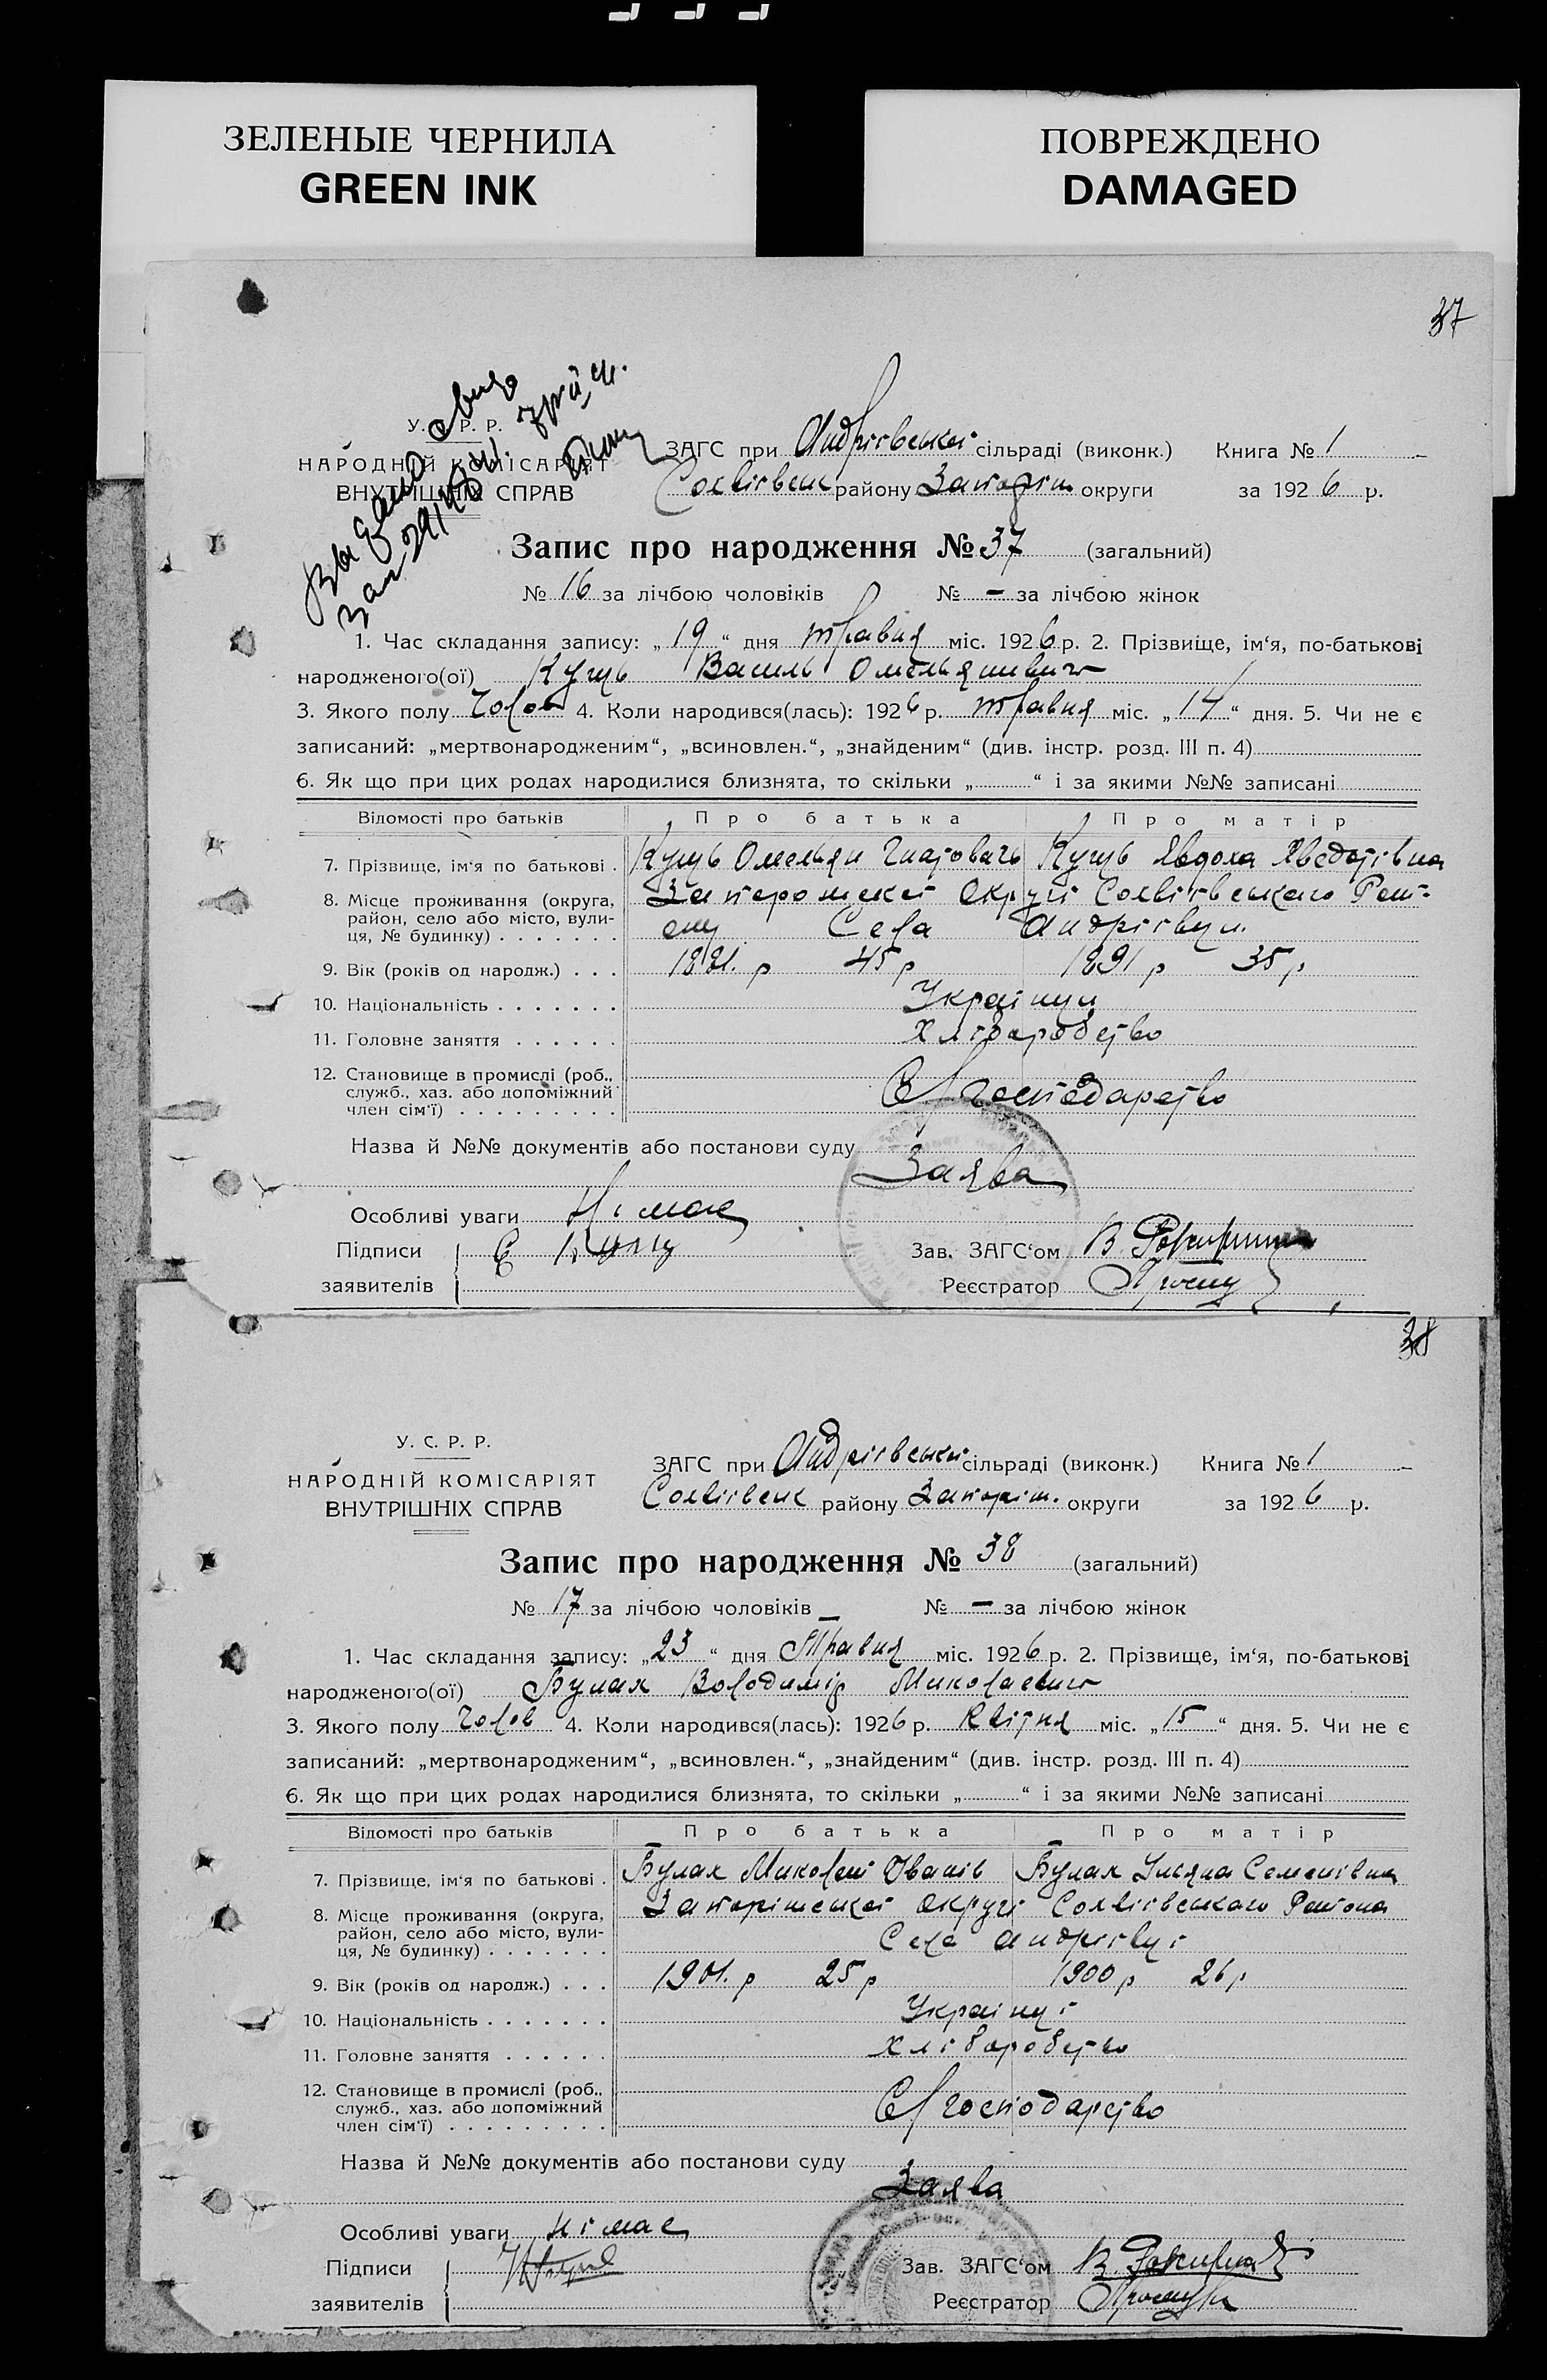 ЗЕЛЕНЫЕ ЧЕРНИЛА
GREEN INK
ПОВРЕЖДЕНО
DAMAGED
37
У. С. Р. Р.
НАРОДНІЙ КОМІСАРІЯТ
ВНУТРІШНІХ СПРАВ
Видано
ЗАГС при Андріївській сільраді (виконк.) Книга № 1
району Запоріж округи за 1926 р.
Запис про народження № 37 (загальний)
№ 16 за лічбою чоловіків № — за лічбою жінок
1. Час складання запису: „19“ дня травня міс. 1926 р. 2. Прізвище, ім‘я, по-батькові
народженого(ої) Кущь Василь Омельянивич
3. Якого полу Чолов 4. Коли народився(лась): 1926 р. травня міс. „14“ дня. 5. Чи не є
записаний: „мертвонародженим“, „всиновлен.“, „знайденим“ (див. інстр. розд. III п. 4)
6. Як що при цих родах народилися близнята, то скільки „ “ і за якими №№ записані
Відомості про батьків Про батька Про матір
7. Прізвище, ім‘я по батькові . Кущь Омельян Кущь Явдоха
8. Місце проживання (округа,
район, село або місто, вули-
ця, № будинку) . . . . . . . Села Андріївки
9. Вік (років од народж.) . . . 1881. р 45 р 1891 р 35 р
10. Національність . . . . . . . Українци
11. Головне заняття . . . . . . Хліборобство
12. Становище в промислі (роб.,
служб., хаз. або допоміжний
член сім‘ї) . . . . . . . . . С/господарство
Назва й №№ документів або постанови суду
Заява
Особливі уваги Німає
Підписи Зав. ЗАГС‘ом В.
заявителів Реєстратор
38
У. С. Р. Р.
НАРОДНІЙ КОМІСАРІЯТ
ВНУТРІШНІХ СПРАВ
ЗАГС при Андріївській сільраді (виконк.) Книга № 1
району Запоріж. округи за 1926 р.
Запис про народження № 38 (загальний)
№ 17 за лічбою чоловіків № — за лічбою жінок
1. Час складання запису: „23“ дня Травня міс. 1926 р. 2. Прізвище, ім‘я, по-батькові
народженого(ої) Булах Володимір Миколаевич
3. Якого полу Чолов 4. Коли народився(лась): 1926 р. Квітня міс. „15“ дня. 5. Чи не є
записаний: „мертвонародженим“, „всиновлен.“, „знайденим“ (див. інстр. розд. III п. 4)
6. Як що при цих родах народилися близнята, то скільки „ “ і за якими №№ записані
Відомості про батьків Про батька Про матір
7. Прізвище, ім‘я по батькові . Булах Миколай Іванів Булах Уляна Семенівна
8. Місце проживання (округа, Запоріжської округи
район, село або місто, вули-
ця, № будинку) . . . . . . . Села Андріївкі
9. Вік (років од народж.) . . . 1901. р 25 р 1900 р 26 р
10. Національність . . . . . . . Українці
11. Головне заняття . . . . . . Хліборобство
12. Становище в промислі (роб.,
служб., хаз. або допоміжний
член сім‘ї) . . . . . . . . . С/господарство
Назва й №№ документів або постанови суду
Заява
Особливі уваги німає
Підписи Зав. ЗАГС‘ом В.
заявителів Реєстратор